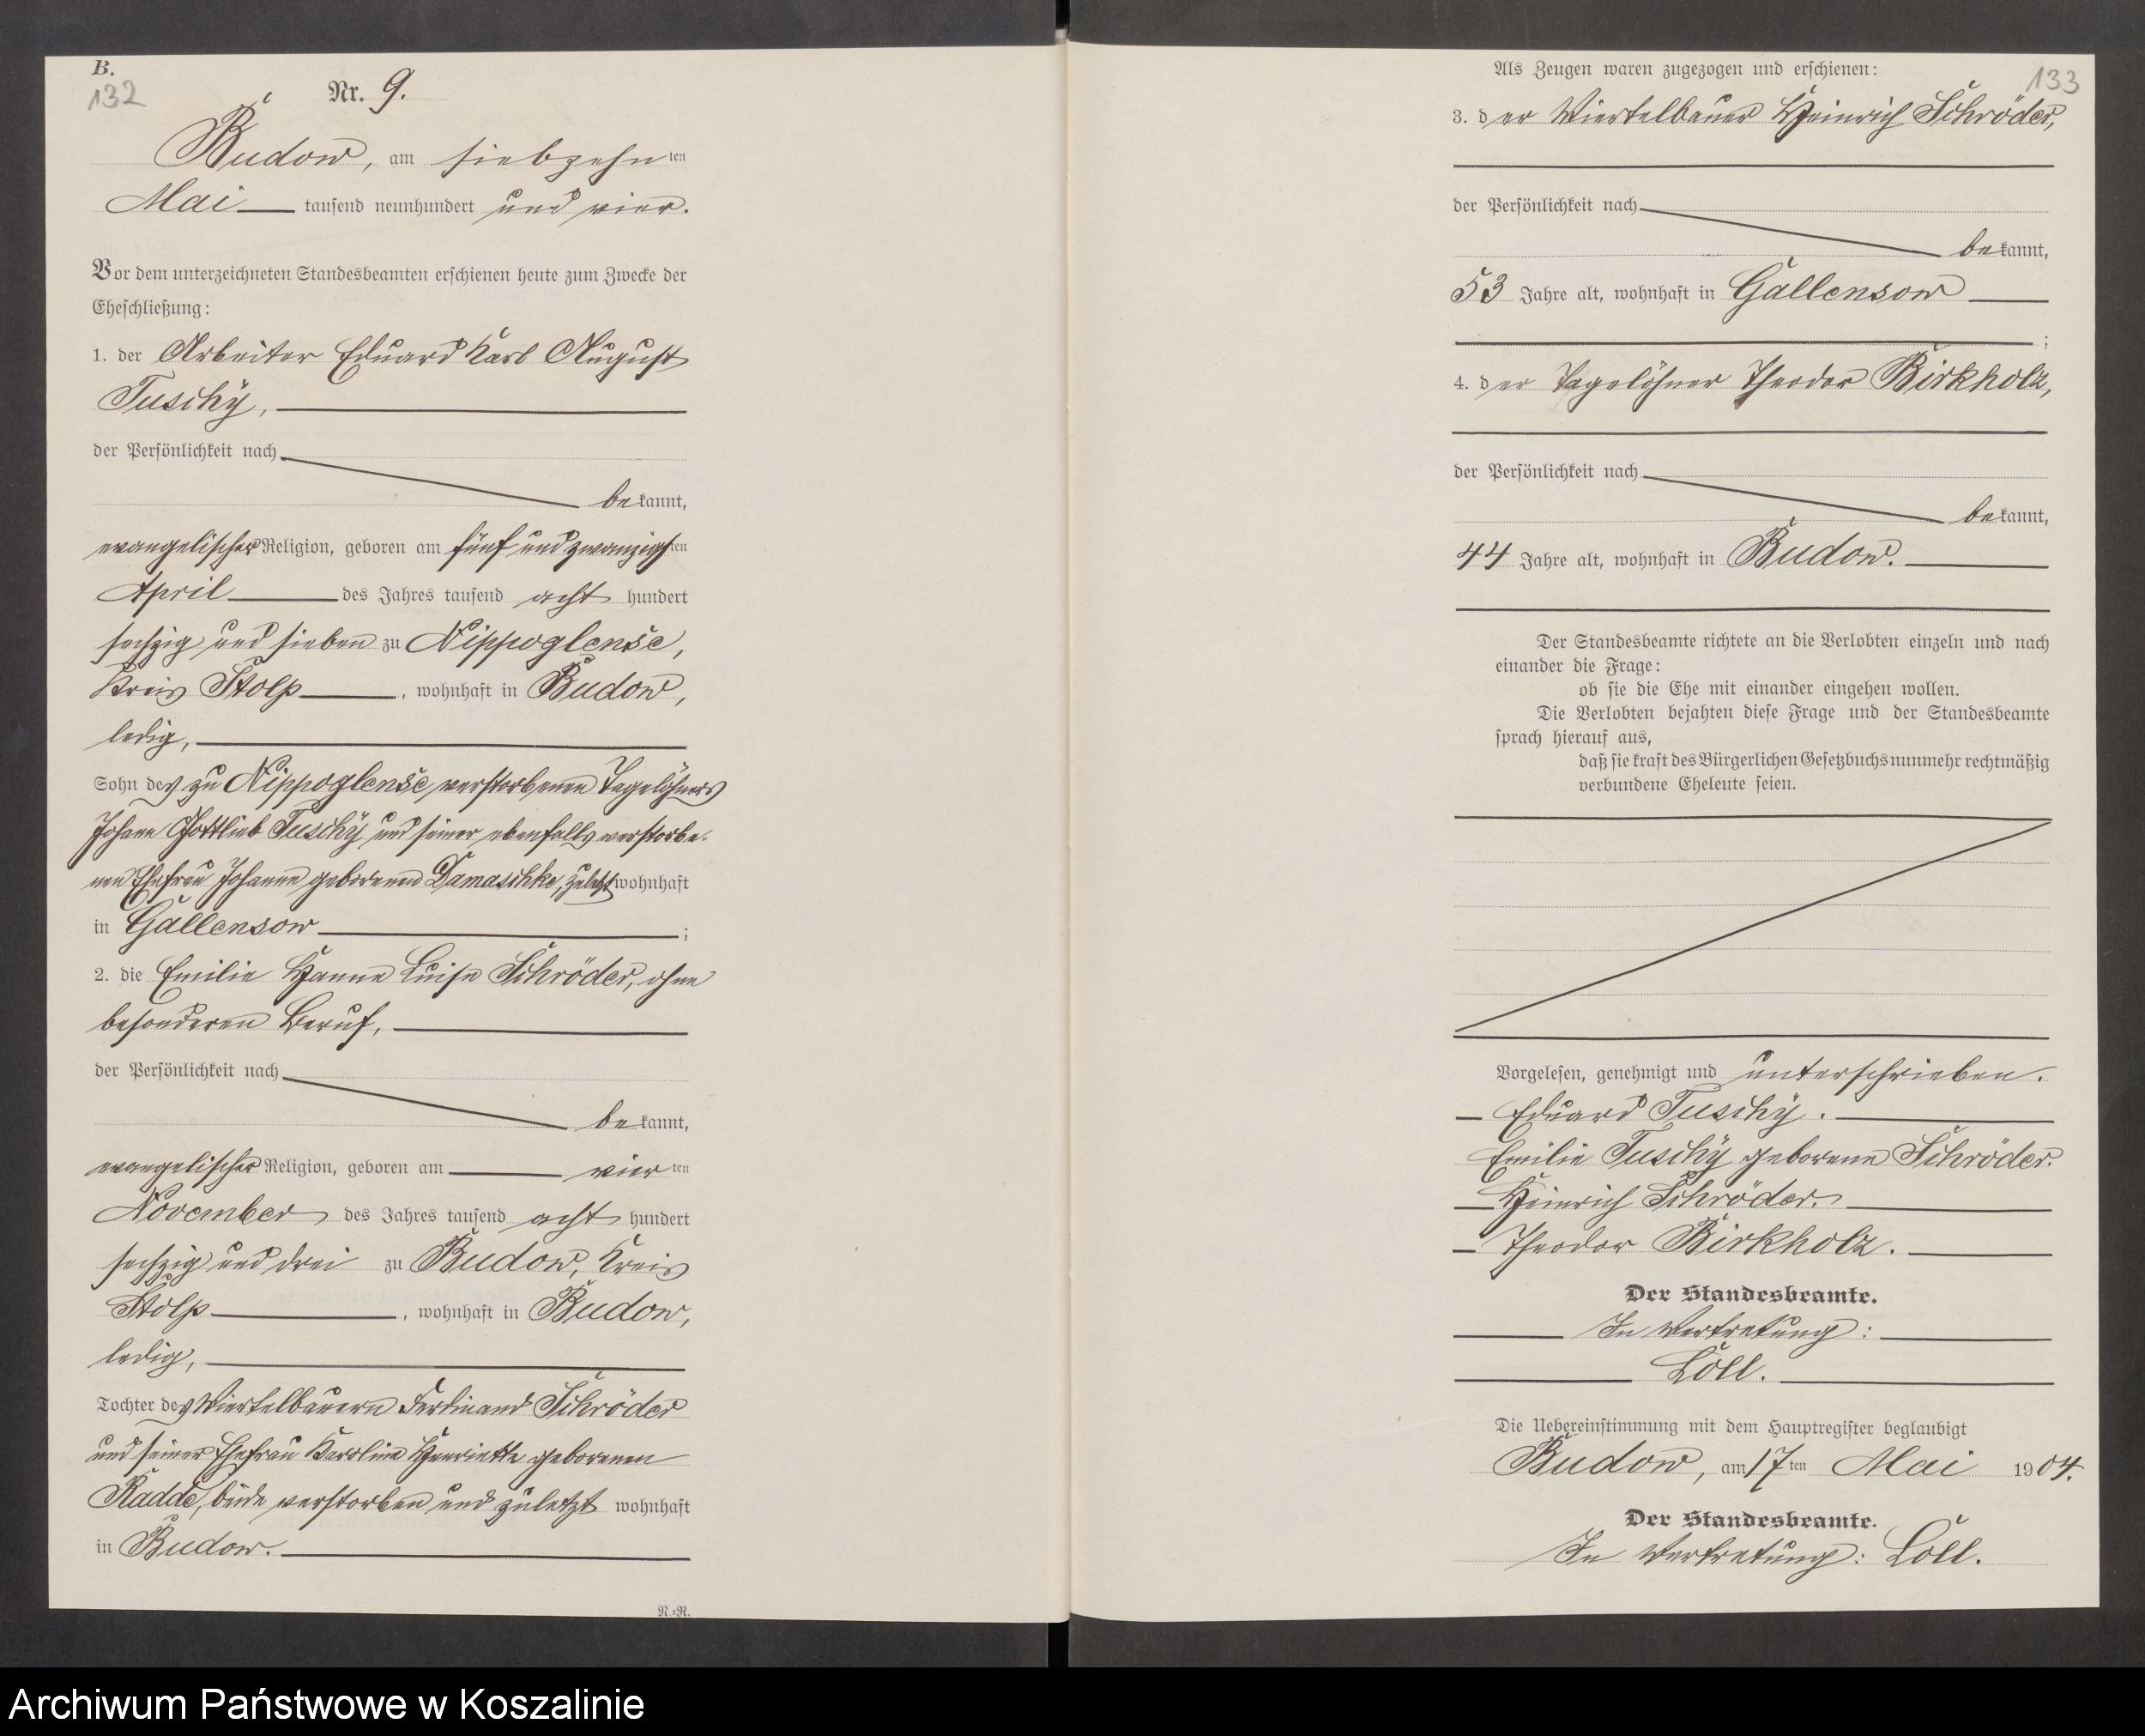 B.
132
Nr. 9.
Budow, am siebzehnten
Mai tausend neunhundert und vier.
Vor dem unterzeichneten Standesbeamten erschienen heute zum Zwecke der
Eheschließung:
1. der Arbeiter Eduard Karl August
Tuschy,
der Persönlichkeit nach
bekannt,
evangelischer Religion, geboren am fünf und zwanzigsten
April des Jahres tausend acht hundert
sechzig und sieben zu Nippoglense,
Kreis Stolp, wohnhaft in Budow,
ledig,
Sohn des zu Nippoglense verstorbenen Tagelöhners
Johann Gottlieb Tuschy und seiner ebenfalls verstorbe-
nen Ehefrau Johanne geborenen Damaschke, zuletzt wohnhaft
in Gallensow;
2. die Emilie Hanne Luise Schröder, ohne
besonderen Beruf,
der Persönlichkeit nach
bekannt,
evangelischer Religion, geboren am vierten
November des Jahres tausend acht hundert
sechzig und drei zu Budow, Kreis
Stolp, wohnhaft in Budow,
ledig,
Tochter des Viertelbauern Ferdinand Schröder
und seiner Ehefrau Karoline Henriette geborenen
Radde, beide verstorben und zuletzt wohnhaft
in Budow.
N.=R.
133
Als Zeugen waren zugezogen und erschienen:
3. der Viertelbauer Heinrich Schröder,
der Persönlichkeit nach
bekannt,
53 Jahre alt, wohnhaft in Gallensow
;
4. der Tagelöhner Theodor Birkholz,
der Persönlichkeit nach
bekannt,
44 Jahre alt, wohnhaft in Budow.
Der Standesbeamte richtete an die Verlobten einzeln und nach
einander die Frage:
ob sie die Ehe mit einander eingehen wollen.
Die Verlobten bejahten diese Frage und der Standesbeamte
sprach hierauf aus,
daß sie kraft des Bürgerlichen Gesetzbuchs nunmehr rechtmäßig
verbundene Eheleute seien.
Vorgelesen, genehmigt und unterschrieben.
Eduard Tuschy.
Emilie Tuschy geborene Schröder.
Heinrich Schröder.
Theodor Birkholz.
Der Standesbeamte.
In Vertretung:
Löll.
Die Uebereinstimmung mit dem Hauptregister beglaubigt
Budow, am 17ten Mai 1904.
Der Standesbeamte.
In Vertretung: Löll.
Archiwum Państwowe w Koszalinie